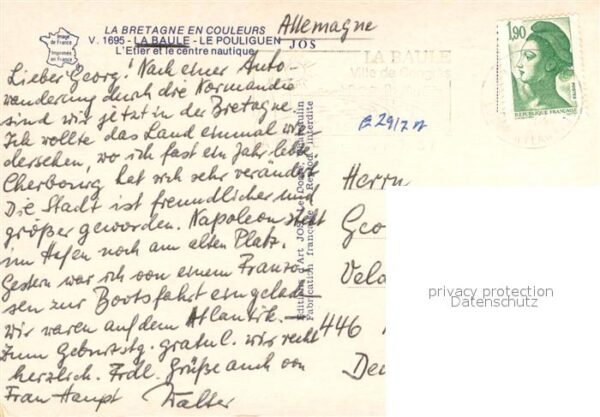 LA BRETAGNE EN COULEURS
V. 1695 - LA BAULE - LE POULIGUEN
L'Etier et le centre nautique
JOS
Image de France
Imprimée en France
Allemagne
LA BAULE
Ville de Congrès
1,90
REPUBLIQUE FRANÇAISE
E 29/7
Lieber Georg! Nach einer Auto-
wanderung durch die Normandie
sind wir jetzt in der Bretagne.
Ich wollte das Land einmal wie-
dersehen, wo ich fast ein Jahr lebte
Cherbourg hat sich sehr verändert
Die Stadt ist freundlicher und
größer geworden. Napoleon steht
im Hafen noch am alten Platz.
Gestern war ich von einem Franzo-
sen zur Bootsfahrt eingeladen
wir waren auf dem Atlantik. -
Zum Geburtstg. gratul. wir recht
herzlich. Frdl. Grüße auch von
Frau Haupt Walter
Editions d'Art JOS Le Doaré
Fabrication française Reprod. interdite
Herrn
Geo
Vela
446
Deu
privacy protection
Datenschutz